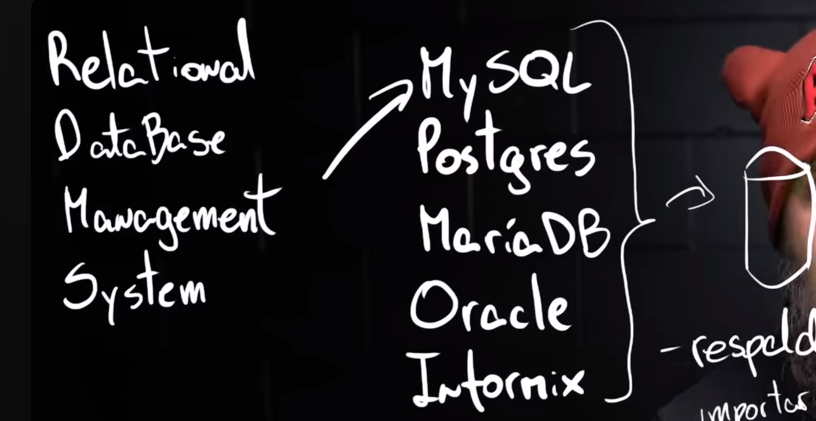 Relational
DataBase
Management
System
MySQL
Postgres
MaríaDB
Oracle
Informix
importar